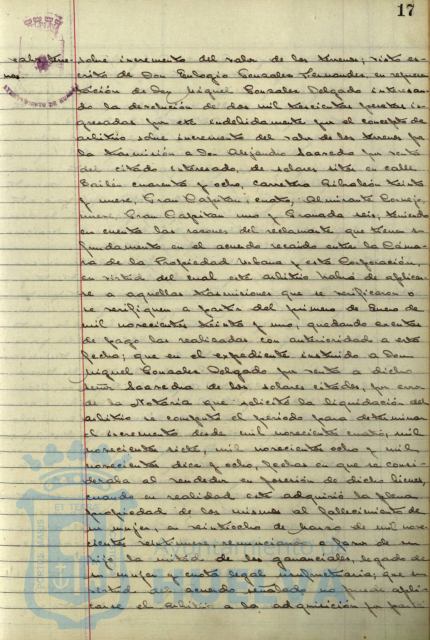 17
sobre incremento del valor de los terrenos; visto es-
crito de Don Eulogio Gonzalez Fernandez, en represen-
tación de Don Miguel Gonzalez Delgado interesan-
do la devolución de dos mil trescientas pesetas in-
gresadas por este indebidamente por el concepto de
arbitrio sobre incremento del valor de los terrenos por
la trasmisión a Don Alejandro Saavedra por venta
del citado interesado, de solares sitos en calle
Bailén cuarenta y ocho, carretera Gibraleón treinta
y nueve, Gran Capitan cuatro, Almirante Cornejo,
nueve, Gran Capitan uno y Granada seis, teniendo
en cuenta las razones del reclamante que tienen su
fundamento en el acuerdo recaido entre la Cáma-
ra de la Propiedad Urbana y esta Corporación,
en virtud del cual este arbitrio habrá de aplicar-
se a aquellas trasmisiones que se verificaron o
se verifiquen a partir del primero de Enero de
mil novecientos treinta y uno, quedando exentas
de pago las realizadas con anterioridad a esta
fecha; que en el expediente instruido a Don
Miguel Gonzalez Delgado por venta a dicho
señor Saavedra de los solares citados, por error
de la Notaria que solicitó la liquidación del
arbitrio se computó el período para determinar
el incremento desde mil novecientos cuatro, mil
novecientos siete, mil novecientos ocho y mil
novecientos diez y ocho, fechas en que se consi-
deraba al vendedor en posesión de dichos bienes,
cuando en realidad este adquirió la plena
propiedad de los mismos al fallecimiento de
su mujer, en veintiocho de marzo de mil nove-
cientos veintinueve renunciando a favor de su
hijo la mitad de los gananciales, legado de
su mujer y cuota legal usufructuaria; que en
virtud del acuerdo señalado no puede apli-
carse el arbitrio a la adquisición por parte